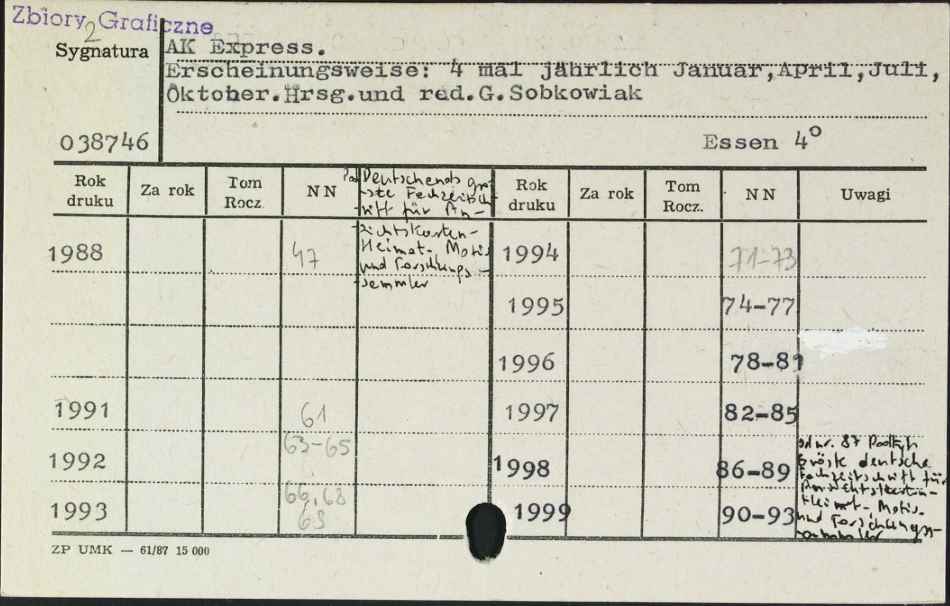 Zbiory Graficzne
2
Sygnatura
AK Express.
Erscheinungsweise: 4 mal jährlich Januar, April, Juli,
Oktober. Hrsg. und red. G. Sobkowiak
038746
Essen 4°
Rok druku Za rok Tom Rocz. NN
Deutschends grö-
ste Fachzeitsch-
rift für An-
sichtskarten-
Heimat- Motiv
und Forschungs-
sammler
Rok druku Za rok Tom Rocz. NN Uwagi
1988 47 1994 71-73
1995 74-77
1996 78-81
1991 61 1997 82-85
1992 63-65 1998 86-89
1993 66, 68 1999 90-93
69
od nr. 87 Podtyt.
Gröste deutsche
Fachzeitschrift für
Ansichtskarten-
Heimat- Motiv-
und Forschungs-
sammler
ZP UMK — 61/87 15 000